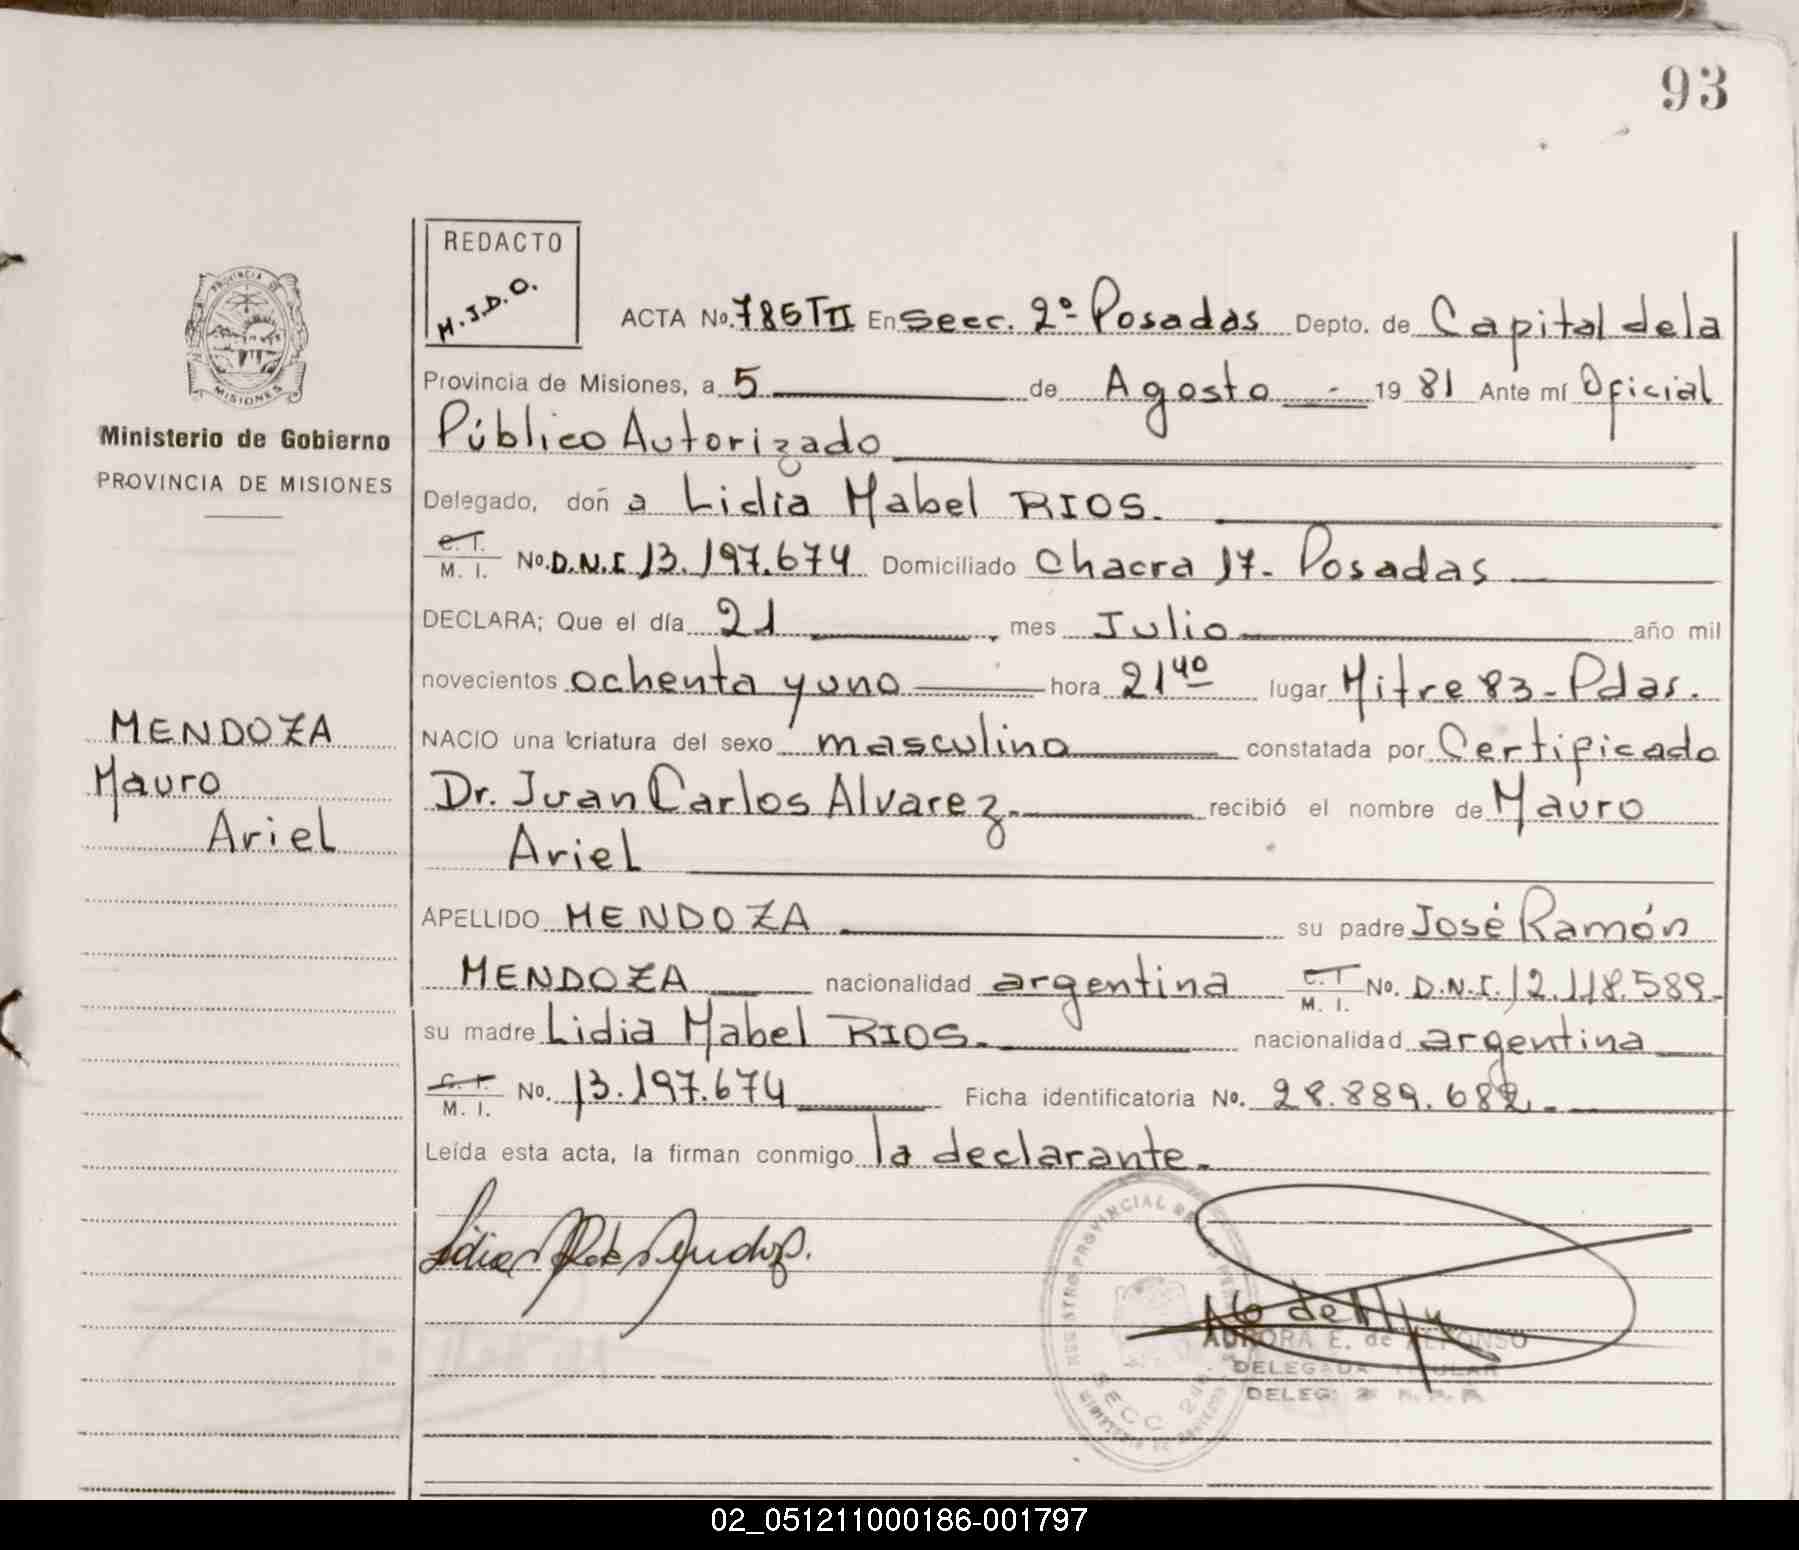 93
REDACTO
M.J.D.O.
PROVINCIA DE
MISIONES
Ministerio de Gobierno
PROVINCIA DE MISIONES
MENDOZA
Mauro
Ariel
ACTA No. 785 TII En Secc. 2º Posadas Depto. de Capital de la
Provincia de Misiones, a 5 de Agosto - 19 81 Ante mí Oficial
Público Autorizado
Delegado, doñ a Lidia Mabel RIOS.
C.T. / M. I. No. D.N.I 13.197.674 Domiciliado Chacra 17- Posadas
DECLARA; Que el día 21, mes Julio año mil
novecientos ochenta y uno hora 21 40 lugar Mitre 83 - Pdas.
NACIO una criatura del sexo masculino constatada por Certificado
Dr. Juan Carlos Alvarez. recibió el nombre de Mauro
Ariel
APELLIDO MENDOZA su padre José Ramón
MENDOZA nacionalidad argentina C.T / M. I. No. D.N.I. 12.118.589-
su madre Lidia Mabel RIOS. nacionalidad argentina
C.T. / M. I. No. 13.197.674 Ficha identificatoria No. 28.889.682.
Leída esta acta, la firman conmigo la declarante.
REGISTRO PROVINCIAL
SECC.
AURORA E. de ALFONSO
DELEGADA TITULAR
DELEG. 2
02_051211000186-001797